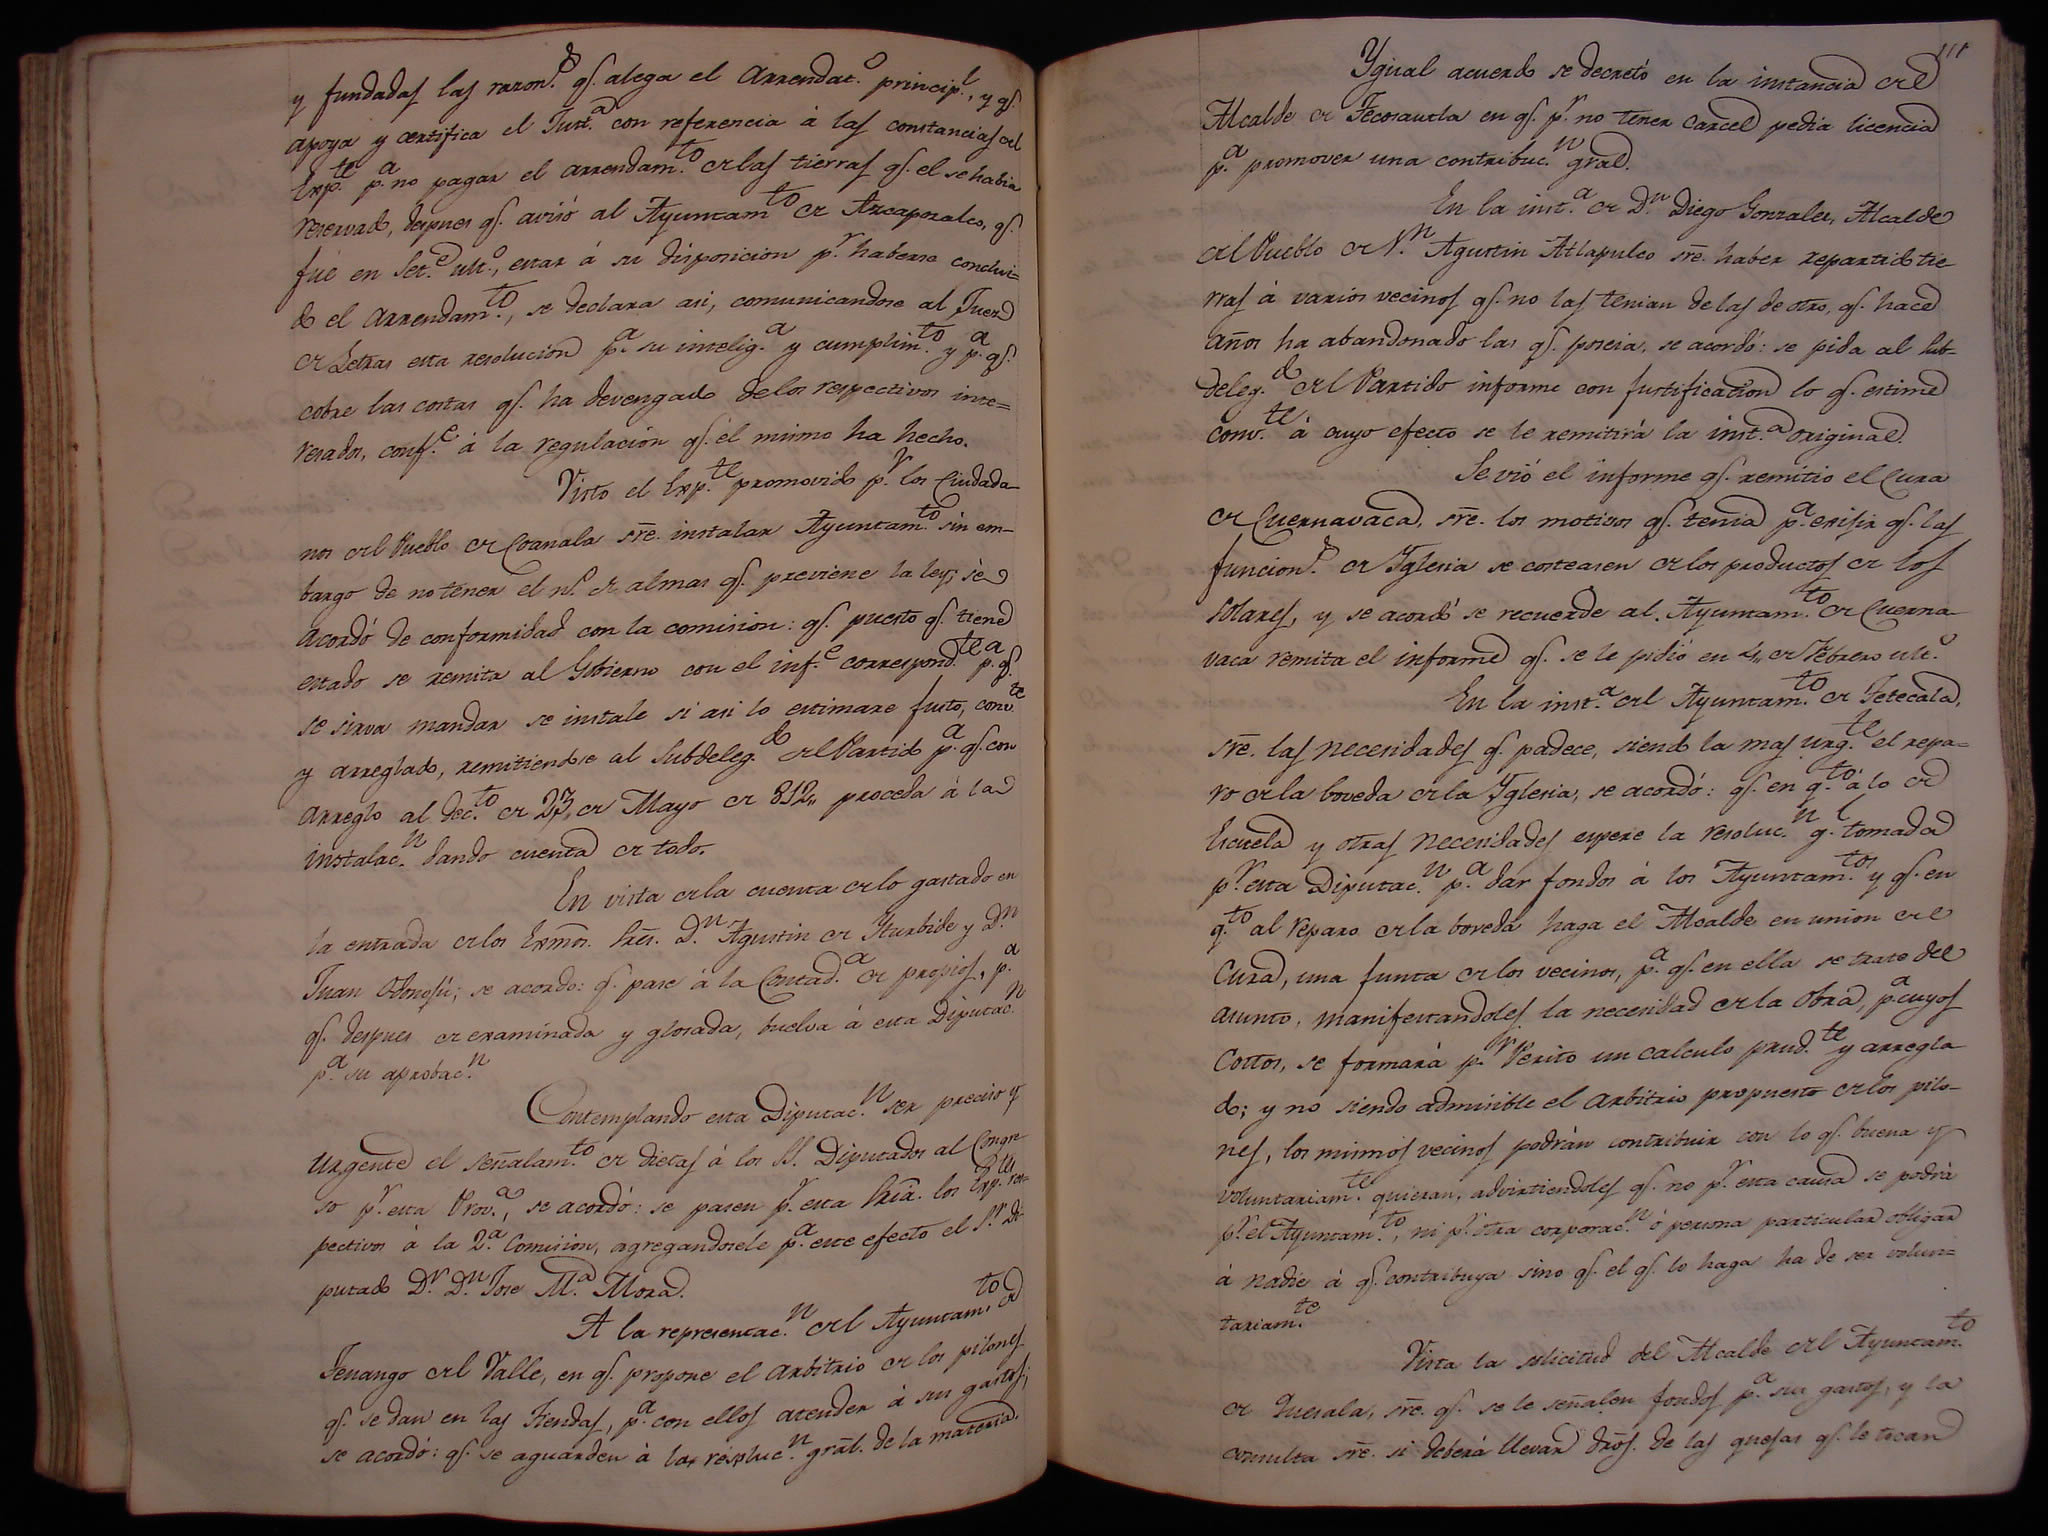 y fundadas las razon.s qs. alega el Arrendat.o princip.l, y qs.
apoya y certifica el Just.a con referencia à las constancias del
Exp.te p.a no pagar el arrendam.to de las tierras qs. el se habia
reservado, despues qs. avisó al Ayuntam.to de Azcapozalco, qs.
fué en Set.e ult.o, estar á su disposicion p.r haberse conclui-
do el Arrendam.to, se declara asi, comunicandose al Juez
de Letras esta resolucion p.a su intelig.a y cumplim.to y p.a qs.
cobre las costas qs. ha devengado de los respectivos inte=
resados, conf.e à la regulacion qs. él mismo ha hecho.
Visto el Exp.te promovido p.r los Ciudada-
nos del Pueblo de Coanala sre. instalar Ayuntam.to sin em-
bargo de no tener el n.o de almas qs. previene la ley; sè
acordó de conformidad con la comision: qs. puesto qs. tiene
estado se remita al Gobierno con el inf.e correspond.te p.a qs.
se sirva mandar se instale si asi lo estimare justo, conv.te
y arreglado, remitiendose al Subdeleg.do del Partido p.a qs. con
arreglo al dec.to de 23,, de Mayo de 812,, proceda à la
instalac.n dando cuenta de todo.
En vista de la cuenta de lo gastado en
la entrada de los Exmos. Sres. D.n Agustin de Yturbide y D.n
Juan Odonojú; se acordo: q. pase á la Contad.a de propios, p.a
qs. despues de examinada y glosada, buelva á esta Diputac.n
p.a su aprobac.n
Contemplando esta Diputac.n ser preciso y
urgente el señalam.to de dietas á los SS. Diputados al Congre
so p.r esta Prov.a, se acordó: se pasen p.r esta Sria. los Exp.tes res-
pectivos à la 2.a Comision, agregandosele p.a este efecto el S.r Di-
putado D.r D.n Jose M.a Mora.
A la representac.n del Ayuntam.to de
Tenango del Valle, en qs. propone el arbitrio de los pilones
qs. se dan en las Tiendas, p.a con ellos atender à sus gastos,
se acordó: qs. se aguarden à la resoluc.n gral. de la materia.
111
Ygual acuerdo se decretó en la instancia del
Alcalde de Tecosautla en qs. p.r no tener carcel pedia licencia
p.a promover una contribuc.n gral.
En la inst.a de D.n Diego Gonzales, Alcalde
del Pueblo de S.n Agustin Atlapulco sre. haber repartido tie-
rras á varios vecinos qs. no las tenian de las de otro, qs. hace
años ha abandonado las qs. poseia, se acordó: se pida al sub-
deleg.do del Partido informe con justificacion lo qs. estime
conv.te á cuyo efecto se le remitirá la inst.a original.
Se vió el informe qs. remitio el Cura
de Cuernavaca, sre. los motivos qs. tenia p.a exijir qs. las
funcion.s de Yglesia se costeasen de los productos de los
Solares, y se acordó se recuerde al Ayuntam.to de Cuerna-
vaca remita el informe qs. se le pidió en 4,, de Febrero ult.o
En la inst.a del Ayuntam.to de Tetecala,
sre. las necesidades q. padece, siendo la mas urg.te el repa-
ro de la boveda de la Yglesia, se acordó: qs. en q.to á lo de
Escuela y otras necesidades espere la resoluc.n g.l tomada
p.r esta Diputac.n p.a dar fondos á los Ayuntam.tos y qs. en
q.to al reparo de la boveda haga el Alcalde en union del
Cura, una junta de los vecinos, p.a qs. en ella se trate del
asunto, manifestandoles la necesidad de la obra, p.a cuyos
Costos, se formará p.r Perito un calculo prud.te y arregla
do; y no siendo admisible el arbitrio propuesto de los pilo-
nes, los mismos vecinos podrán contribuir con lo qs. buena y
voluntariam.te quieran, advirtiendoles qs. no p.r esta causa se podrà
p.r el Ayuntam.to, ni p.r otra corporac.n ó persona particular obligar
à nadie à qs. contribuya sino qs. el qs. lo haga ha de ser volun=
tariam.te
Vista la solicitud del Alcalde del Ayuntam.to
de sre. qs. se le señalen fondos p.a sus gastos, y la
consulta sre. si deberá llevar dros. de las quejas qs. le tocan